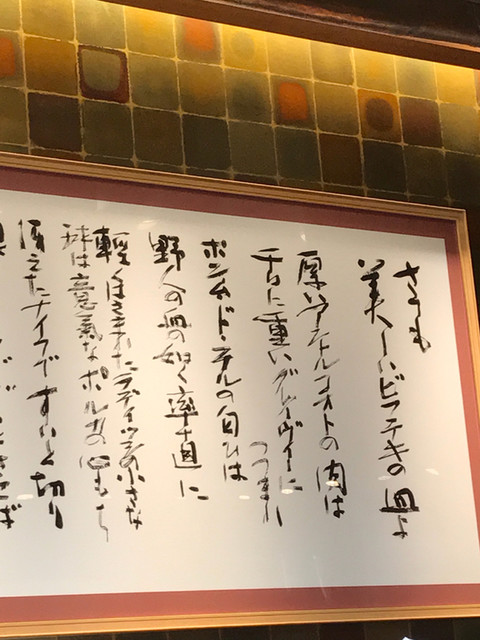 さても
美しいビフテキの皿よ
厚いアントルコオトの肉は
舌に重いグレイヴィーに
つつまれ
ポンム・ド・テルの匂ひは
野人の皿の如く率直に
輕くほされたラディッシの小さな
珠は意氣なポルカの心もち
冴えたナイフですいと切り